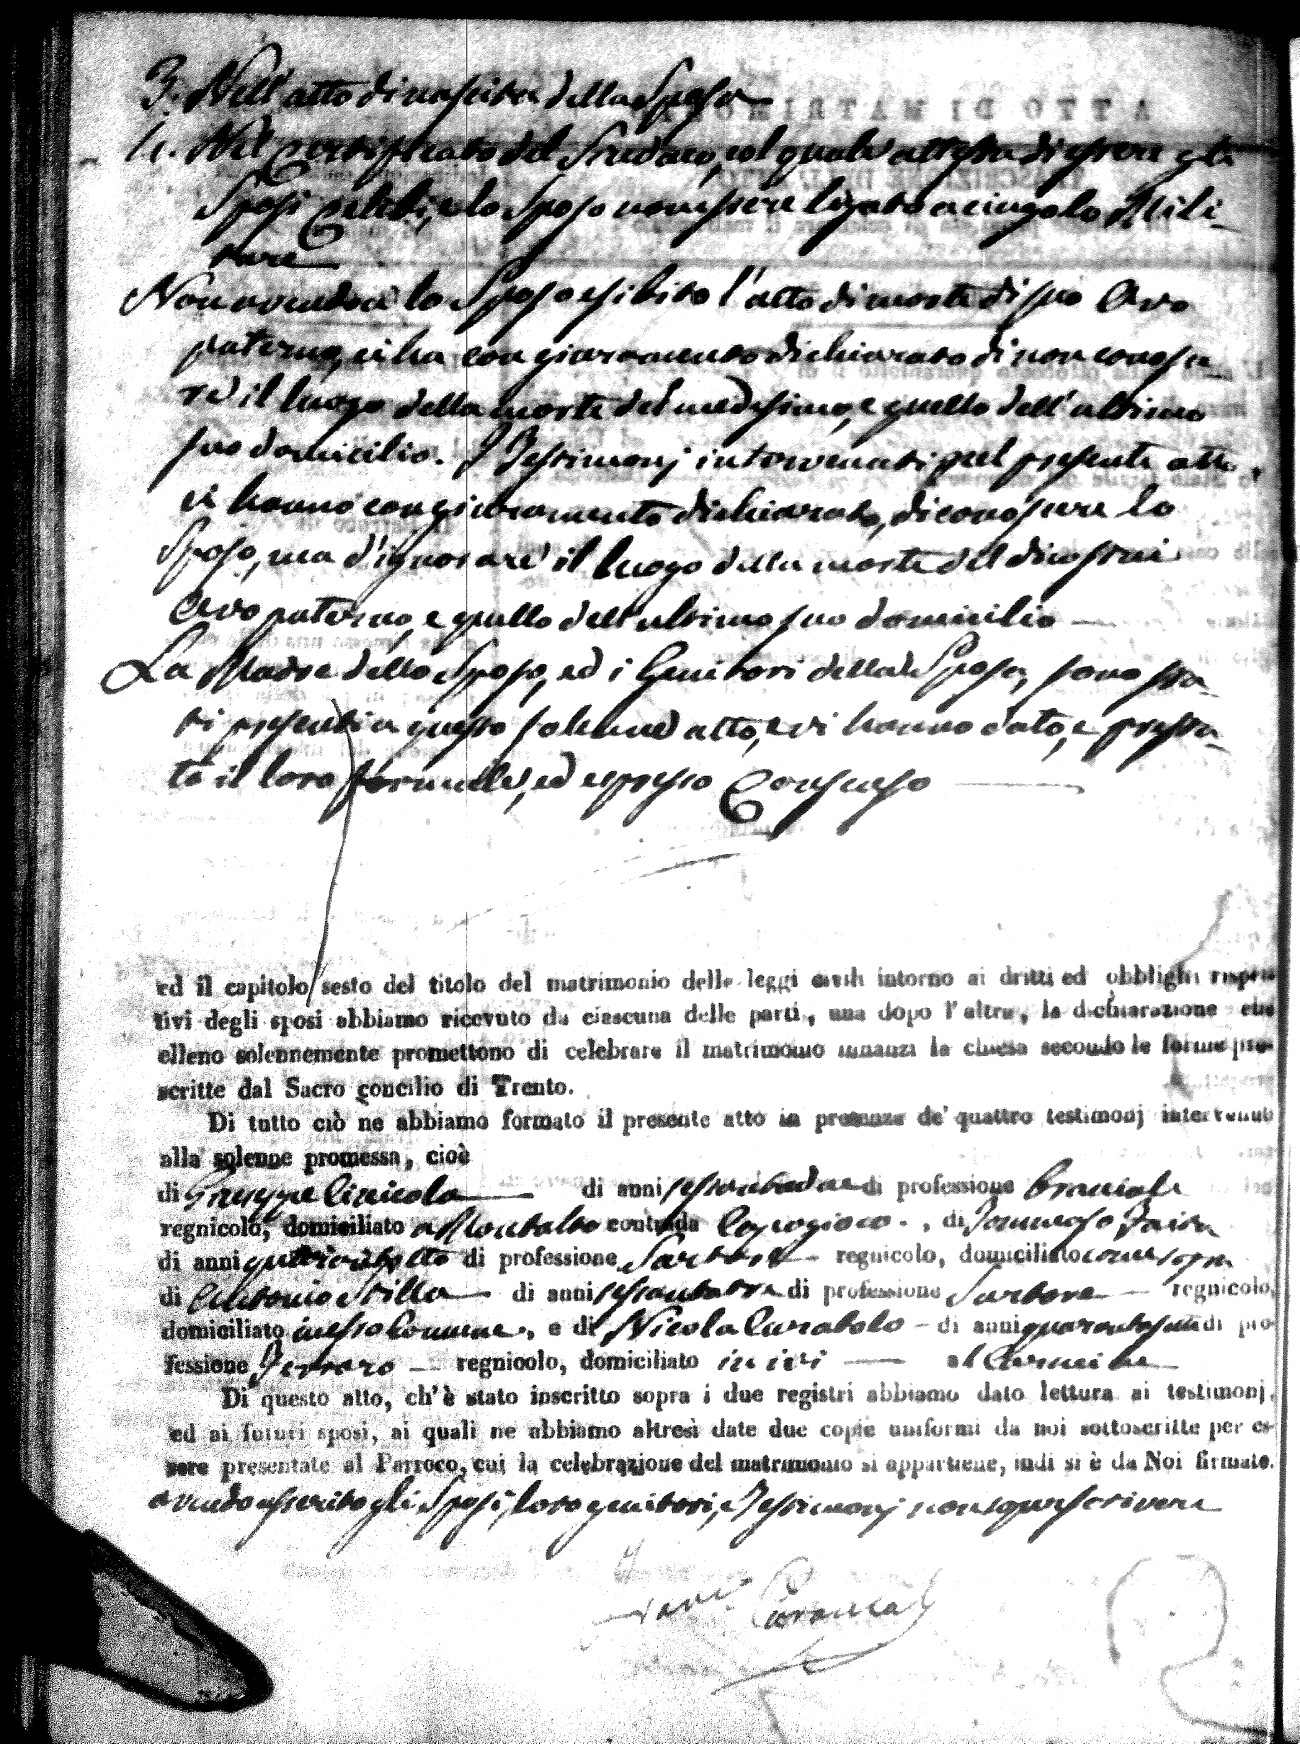 3. Nell'atto di nascita della Sposa
4. Nel certificato del Sindaco, col quale attesta di essere gli
Sposi celibi, e lo Sposo non essere ligato a cingolo Mili-
tare
Non avendoci lo Sposo esibito l'atto di morte di suo Avo
paterno, ci ha con giuramento dichiarato di non conosce-
re il luogo della morte del medesimo, e quello dell'ultimo
suo domicilio. I Testimonj intervenuti pel presente atto,
ci hanno con giuramento dichiarato, di conoscere lo
Sposo, ma d'ignorare il luogo della morte del di costui
Avo paterno, e quello dell'ultimo suo domicilio
La Madre dello Sposo, ed i Genitori della Sposa, sono sta-
ti presenti a questo solenne atto, e vi hanno dato, e presta-
to il loro formale, ed espresso Consenso
ed il capitolo sesto del titolo del matrimonio delle leggi civili intorno ai dritti ed obblighi rispet-
tivi degli sposi abbiamo ricevuto da ciascuna delle parti, una dopo l'altra, la dichiarazione che
elleno solennemente promettono di celebrare il matrimonio innanzi la chiesa secondo le forme pre-
scritte dal Sacro concilio di Trento.
Di tutto ciò ne abbiamo formato il presente atto in presenza de' quattro testimonj intervenuti
alla solenne promessa, cioè
di Giuseppe di anni sessantadue di professione
regnicolo, domiciliato a Montalto contrada , di Tommaso
di anni di professione Sartore regnicolo, domiciliato come sopra
di Antonio Stilla di anni di professione Sartore regnicolo,
domiciliato in esso Comune, e di Nicola di anni di pro-
fessione Ferraro regnicolo, domiciliato in ivi al Carmine
Di questo atto, ch'è stato inscritto sopra i due registri abbiamo dato lettura ai testimonj,
ed ai futuri sposi, ai quali ne abbiamo altresì date due copie uniformi da noi sottoscritte per es-
sere presentate al Parroco, cui la celebrazione del matrimonio si appartiene, indi si è da Noi firmato.
avendo asserito gli Sposi, loro genitori, e Testimonj non saper scrivere